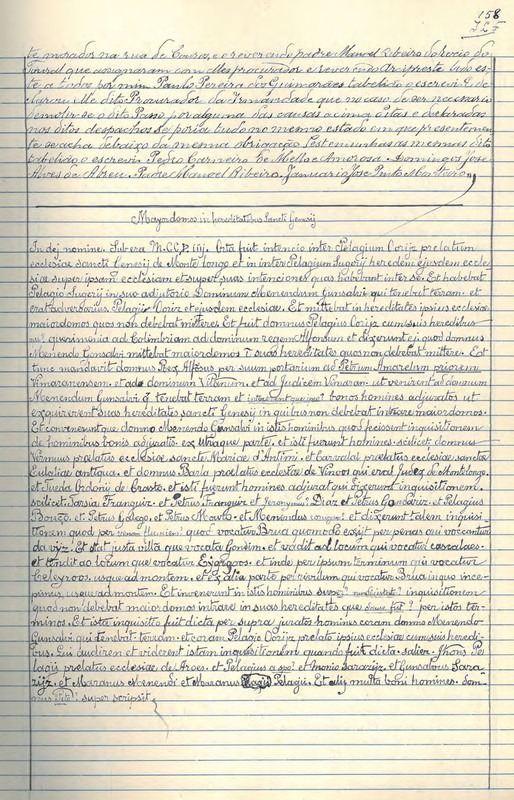 158
te morados na rua de Couros, e o reverendo padre Manoel Ribeiro do Rocio do
Toural que assignaram com elles procurador e reverendo Arcipreste lido es-
te a todos por mim Paulo Pereira dos Guimarães tabelião o escrevi E de-
clarou elle dito Procurador da Irmandade que no caso de ser necessario
demolir-se o dito Passo por alguma das causas acima ditas e declaradas
nos ditos despachos se poria tudo no mesmo estado em que presentemen-
te se acha debaixo da mesma obrigação testemunhas as mesmas dito
tabelião o escrevi Pedro Carneiro de Mello e Amorosa. Domingos José
Alves de Abreu. Padre Manoel Ribeiro. Januario José Pinto Monteiro
Mayordomos in hereditatibus Sancti Genesij
In dej nomine. Sub era M.CC.L iiij. Orta fuit intencio inter Pelagium Corijz prelatum
ecclesiae sancti Genesij de Monte longo et in inter Pelagium Sugerij heredem ejusdem eccle-
siae super ipsam ecclesiam et super suas intenciones quas habebant inter se. Et habebat
Pelagio Sugerij in suo adjutorio Dominum Menendum Gunsalvi qui tenebat terram. et
erat adversarius Pelagij Coriz et ejusdem ecclesiae. Et mittebat in hereditates ipsius ecclesiae
maiordomos quos non debebat mittere. Et fuit domnus Pelagius Corijz cum suis heredibus
querimonia ad Colimbriam ad dominum regem Alfonsum et dixerunt ej quod domnus
Menendo Gunsalvi mittebat maiordomos suas hereditates quos non debebat mittere. Est
tunc mandavit domnus Rex Alfosus per suum portarium ad Petrum Amarelum priorem
Vimaranensem. et ad dominum et ad Judicem Vimaran. ut venirent ad domnum
Menendum Gunsalvi tenebat terram et bonos homines adjuratos ut
exquirerent suas hereditates sancti Genesij in quibus non debebat intrare maiordomos.
Et convenerunt que domno Menendo Gunsalvi in istis hominibus quod fecissent inquisitionem
de hominibus bonis adjuratos ex utraque parte. et isti fuerunt homines. scilicet domnus
prelatus ecclesiae sancte Mariae d'Antimi. et Carvalal prelatus ecclesiae sancte
Eulaliae antiqua. et domnus Barla praelatus ecclesiae de Vinoos qui erat Judez de Montelongo.
et Tueda Ordoniz de Crasto. et isti fuerunt homines adjurati qui dixerunt inquisitionem
scilicet. Tarsia Franquiz et Petrus Franquiz et Jeronymus? Diaz et Petrus Gonsariz. et Pelagius
Bouzo. et Petrus Galego. et Petrus Mauto. et Menendus et dixerunt talem inquisi-
tionem quod per quod vocatur Brua quomodo exijt per penas qui vocantur
da vyz. Et stat justa villa que vocata Gonein. et vadit ad locum qui vocatur casadaes.
et tendit ad locum que vocatur Esgorgos. et inde per ipsum terminum qui vocatur
Teleyroos. usque ad montem. et ex alia parte per rivulum qui vocatur Brua in quo ince-
pimus, usque ad montem. Et invenerunt in istis hominibus inquisitionem
quod non debebat maiordomos intrare in suas hereditates que per istos ter-
minos. Et ista inquisitio fuit dicta per supra juratos homines coram domno Menendo
Gunsalvi qui tenebat terram. et coram Pelagio Corijz prelato ipsius ecclesiae cum suis heredi-
bus. Qui audirent et viderent istam inquisitionem quando fuit dicta. salier. Jhons Pe-
lagis prelatus ecclesiae de Aroes. et Pelagius et Monio Sarazijz. et Gunsalvus Sara-
rijz. et Martinus Menendi et Martinus Pelagii. Et alij multa boni homines. Dom-
nus super scripsit